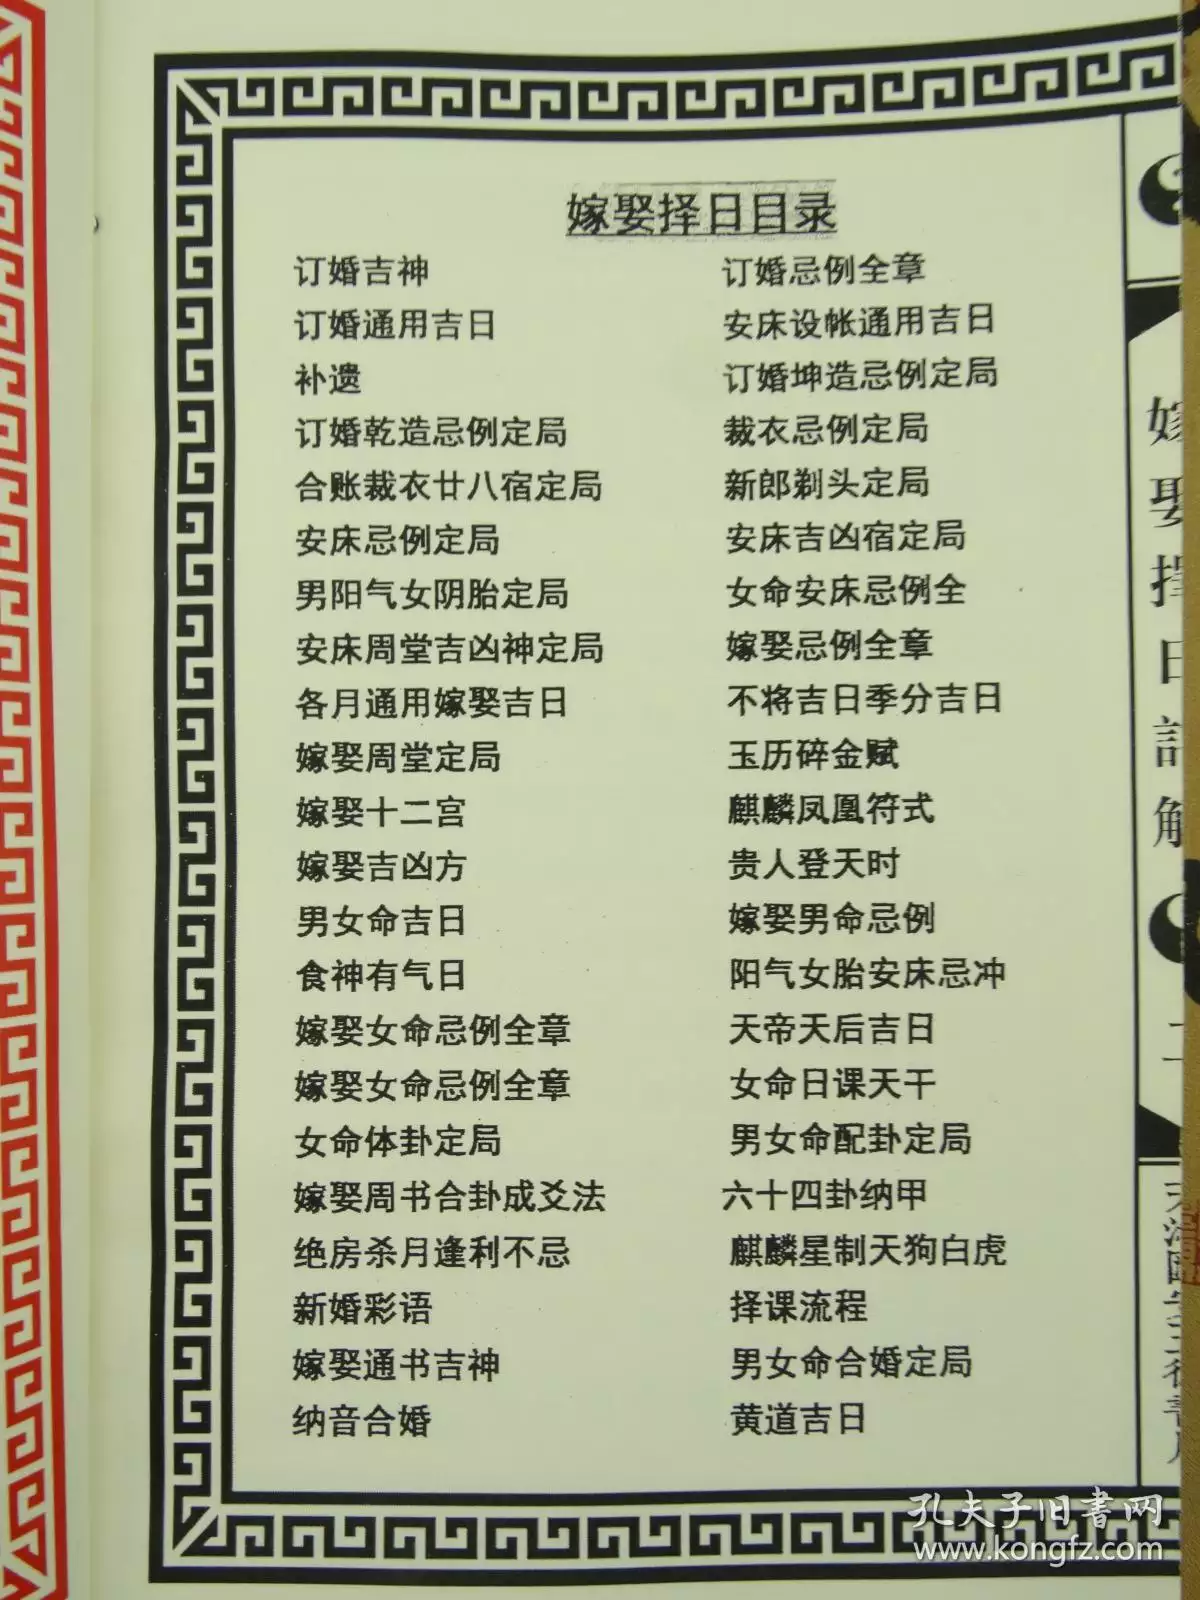 嫁娶择日目录
订婚吉神 订婚忌例全章
订婚通用吉日 安床设帐通用吉日
补遗 订婚坤造忌例定局
订婚乾造忌例定局 裁衣忌例定局
合账裁衣廿八宿定局 新郎剃头定局
安床忌例定局 安床吉凶宿定局
男阳气女阴胎定局 女命安床忌例全
安床周堂吉凶神定局 嫁娶忌例全章
各月通用嫁娶吉日 不将吉日季分吉日
嫁娶周堂定局 玉历碎金赋
嫁娶十二宫 麒麟凤凰符式
嫁娶吉凶方 贵人登天时
男女命吉日 嫁娶男命忌例
食神有气日 阳气女胎安床忌冲
嫁娶女命忌例全章 天帝天后吉日
嫁娶女命忌例全章 女命日课天干
女命体卦定局 男女命配卦定局
嫁娶周书合卦成爻法 六十四卦纳甲
绝房杀月逢利不忌 麒麟星制天狗白虎
新婚彩语 择课流程
嫁娶通书吉神 男女命合婚定局
纳音合婚 黄道吉日
嫁娶择日
孔夫子旧书网
www.kongfz.com